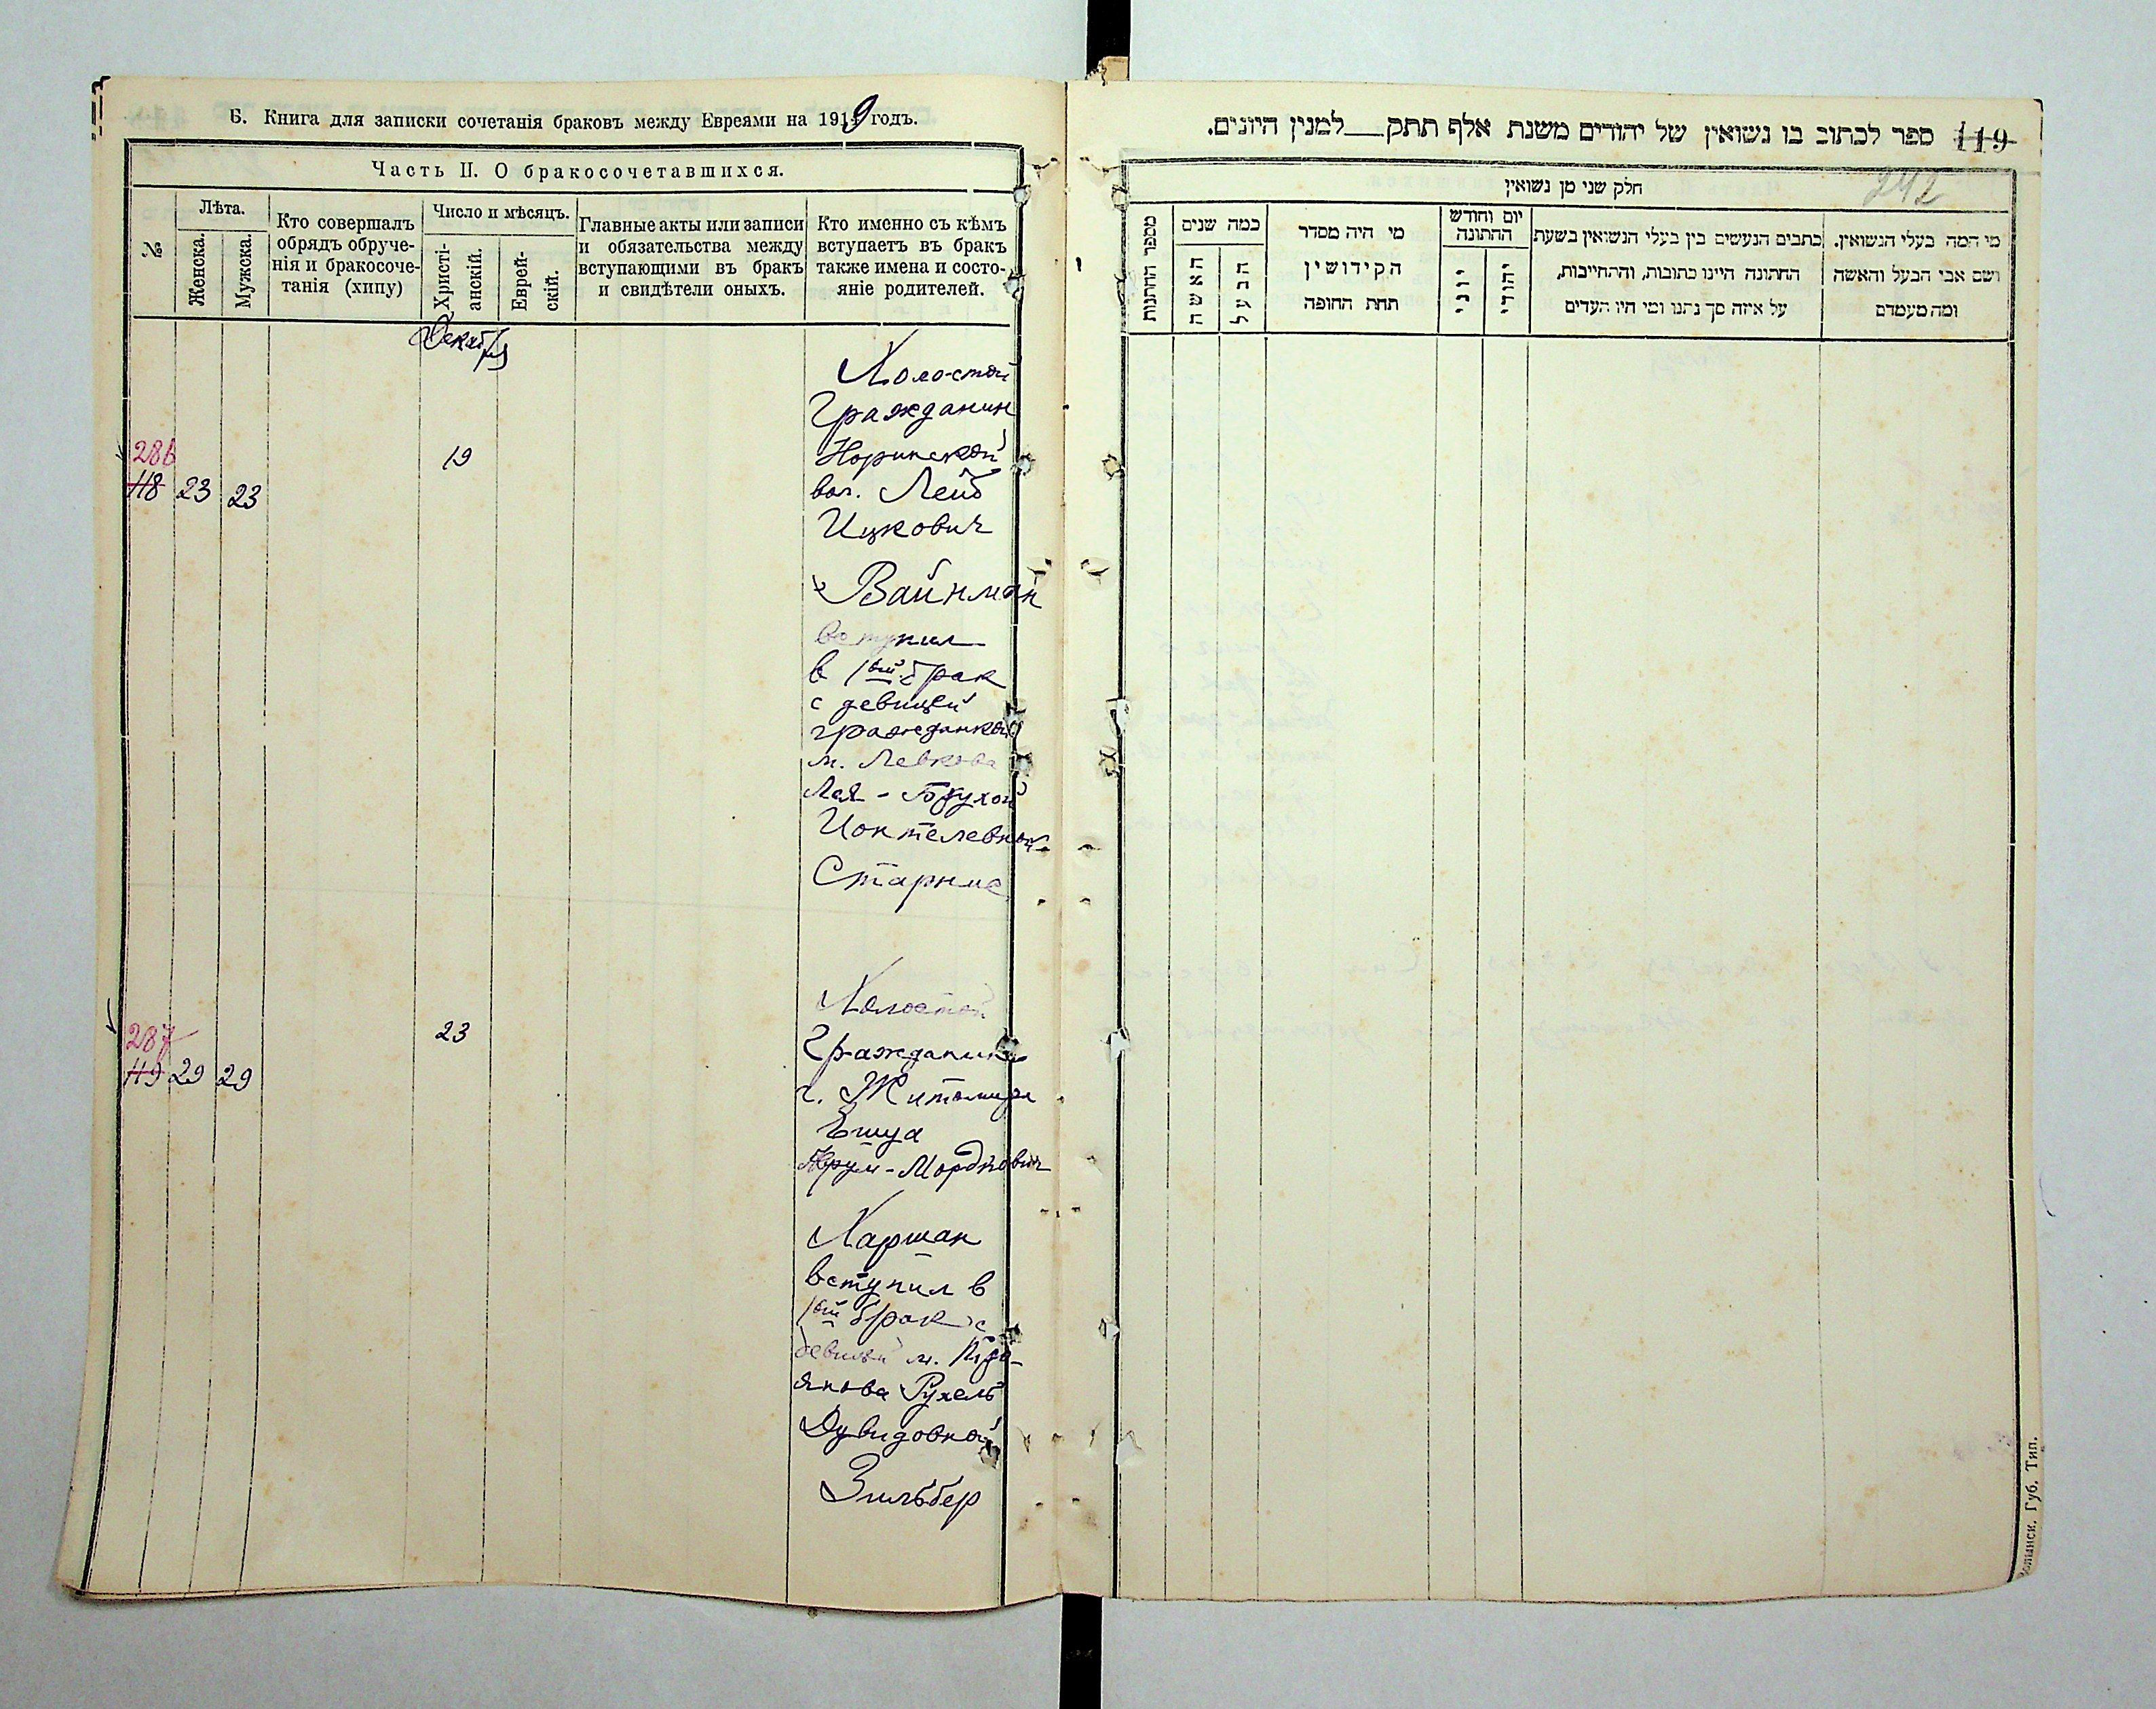 Б. Книга для записки сочетанія браковъ между Евреями на 1919 годъ.
Часть II. О бракосочетавшихся.
№
Лѣта.
Женска.
Мужска.
Кто совершалъ
обрядъ обруче-
нія и бракосоче-
танія (хипу)
Число и мѣсяцъ.
Христі-
анскій.
Еврей-
скій.
Главные акты или записи
и обязательства между
вступающими въ бракъ
и свидѣтели оныхъ.
Кто именно съ кѣмъ
вступаетъ въ бракъ
также имена и состо-
яніе родителей.
Декабря
286
118 23 23
19
Холостой
Гражданин
Норинской
вол. Лейб
Ицкович
Вайнман
вступил
в 1вый брак
с девицей
гражданкой
м. Левкова
Лея - Брухой
Иоктелевной
Старик
287
119 29 29
23
Холостой
Гражданин
г. Житомира
Вшуа
Мордкович
Харшак
вступил в
1вый брак с
девицей м.
янова Рухель
Дувидовной
Зильбер
119 ספר לכתוב בו נשואין של יהודים משנת אלף תתק__למנין היונים.
242
חלק שני מן נשואין
מספר החתונות
כמה שנים
האשה
הבעל
מי היה מסדר
הקידושין
תחת החופה
יום וחודש
החתונה
יוני
יהודי
כתבים הנעשים בין בעלי הנשואין בשעת
החתונה היינו כתובות, והתחייבות,
על איזה סך נתנו ומי היו העדים
מי המה בעלי הנשואין.
ושם אבי הבעל והאשה
ומה מעמדם
Волынск. Губ. Тип.